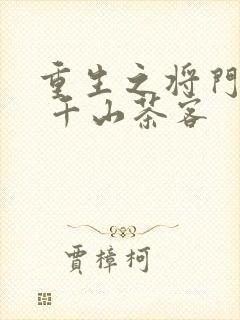 重生之将門
千山茶客
賈樟柯